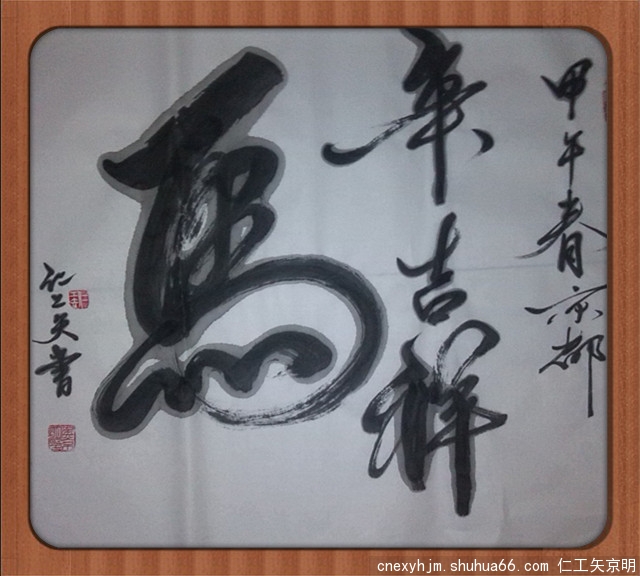 甲午春京都
年吉祥
馬
仁工矢書
cnexyhjm.shuhua66.com 仁工矢京明